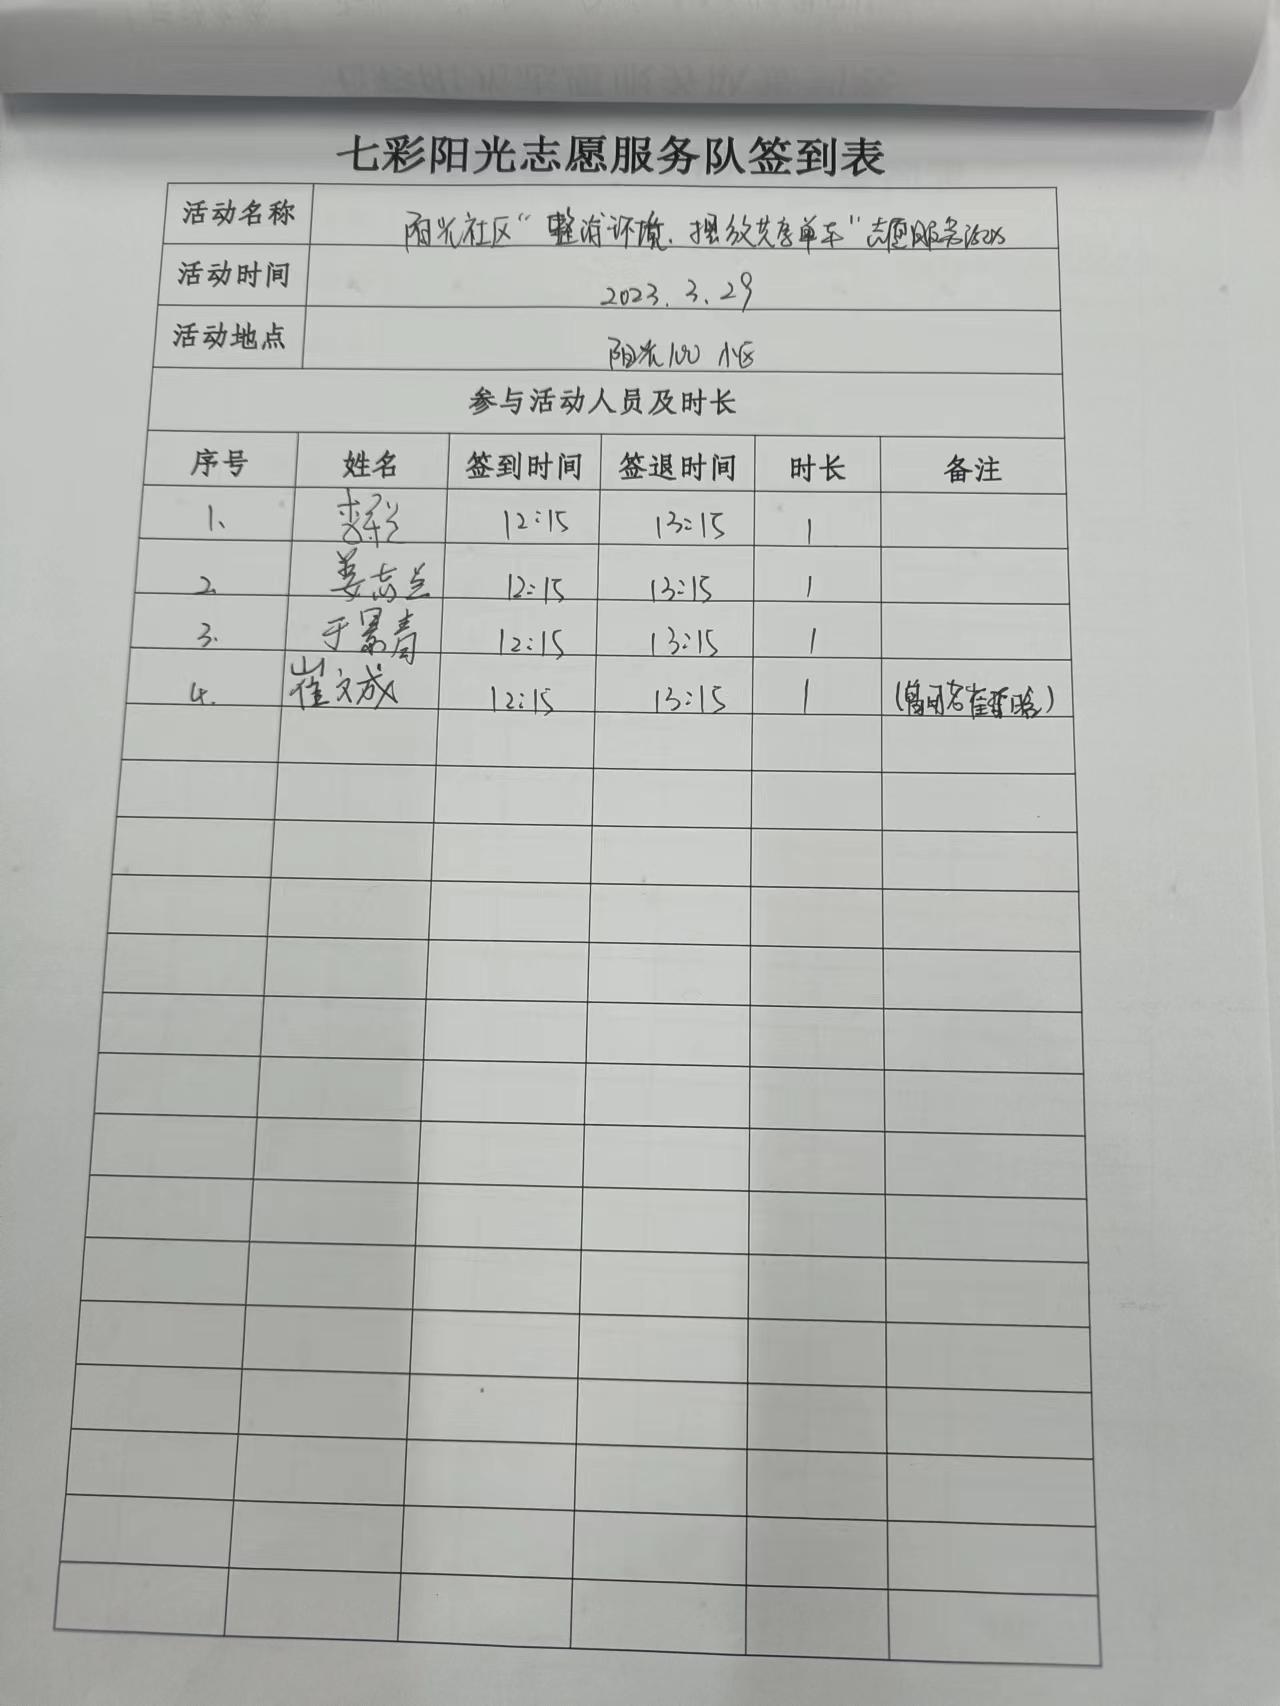 七彩阳光志愿服务队签到表
活动名称 阳光社区“整治环境、摆放共享单车”志愿服务活动
活动时间 2023.3.29
活动地点 阳光100小区
参与活动人员及时长
序号 姓名 签到时间 签退时间 时长 备注
1、 12:15 13:15 1
2、 姜志兰 12:15 13:15 1
3. 于景青 12:15 13:15 1
4. 崔文成 12:15 13:15 1 (曾用名崔暂晗)